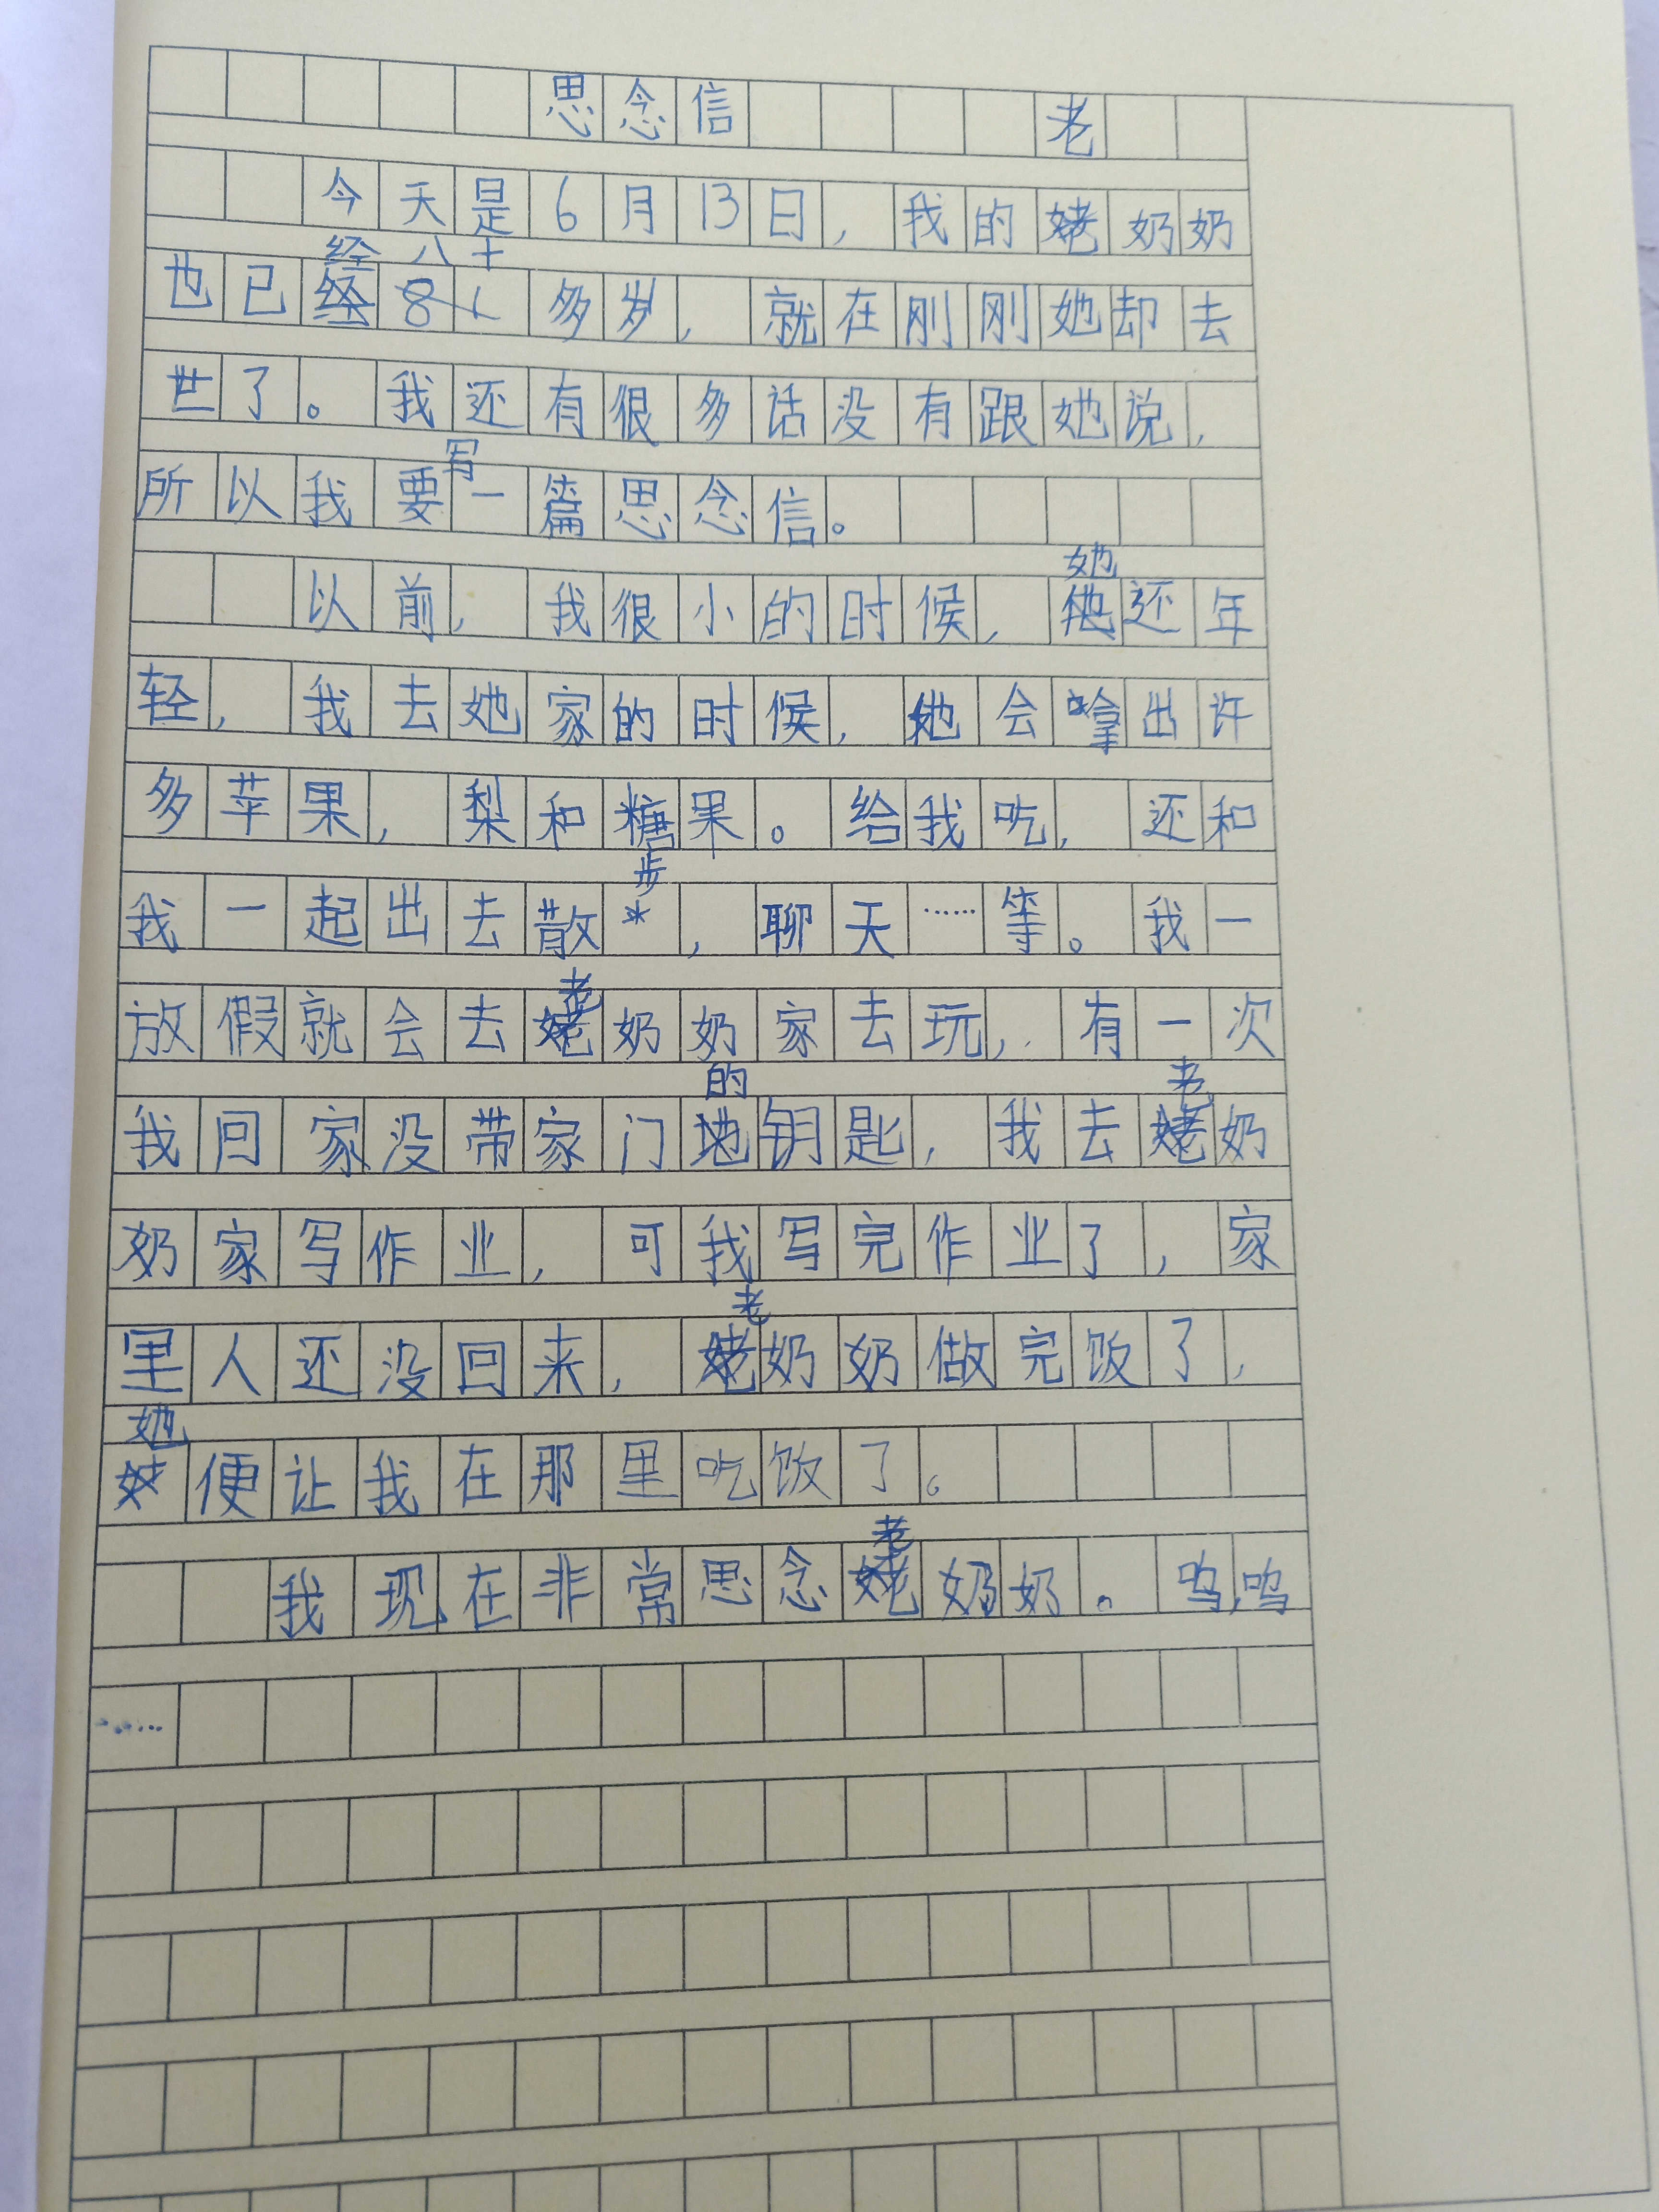 思念信 老
今天是6月13日，我的姥奶奶
经八十
也已经8多岁，就在刚刚她却去
世了。我还有很多话没有跟她说，
写
所以我要一篇思念信。
她
以前，我很小的时候，他还年
轻，我去她家的时候，她会拿出许
多苹果，梨和糖果。给我吃，还和
步
我一起出去散*，聊天……等。我一
老
放假就会去姥奶奶家去玩，有一次
的 老
我回家没带家门地钥匙，我去姥奶
奶家写作业，可我写完作业了，家
老
里人还没回来，姥奶奶做完饭了，
她
便让我在那里吃饭了。
老
我现在非常思念姥奶奶。呜呜
……